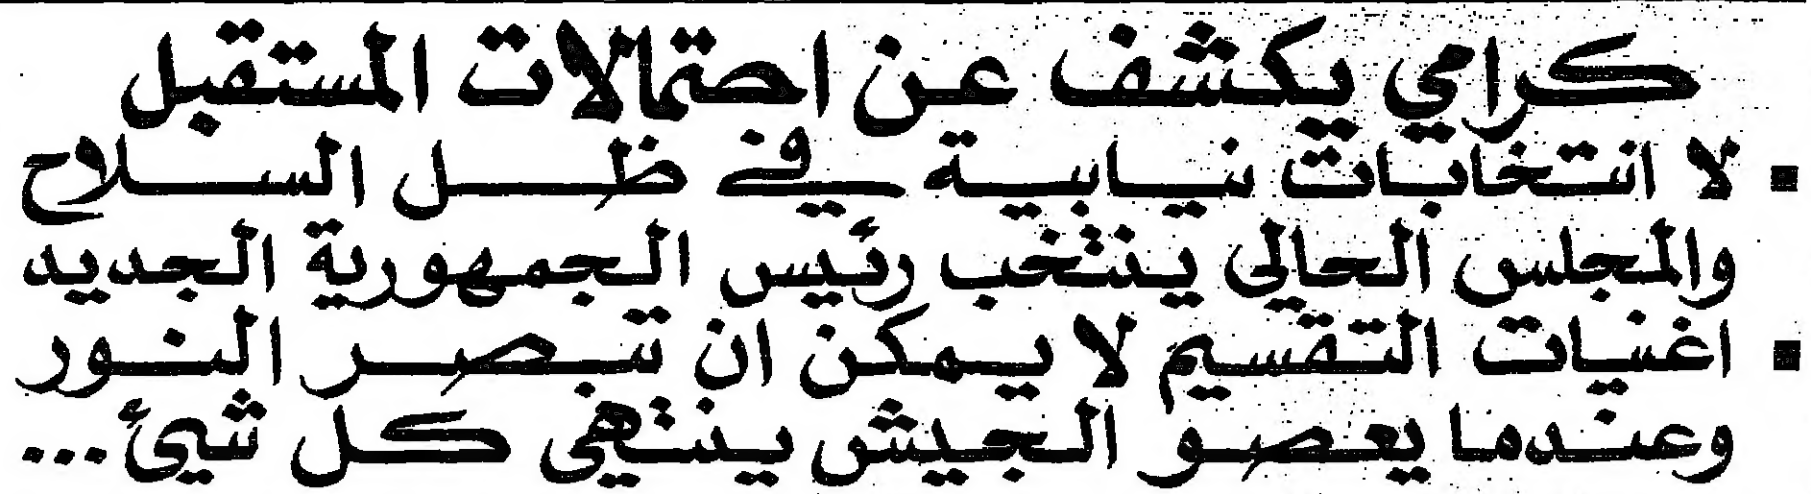 كرامي يكشف عن احتمالات المستقبل
▪ لا انتخابات نيابية في ظل السلاح
والمجلس الحالي ينتخب رئيس الجمهورية الجديد
▪ اغنيات التقسيم لا يمكن ان تبصر النور
وعندما يعصو الجيش ينتهي كل شيئ...